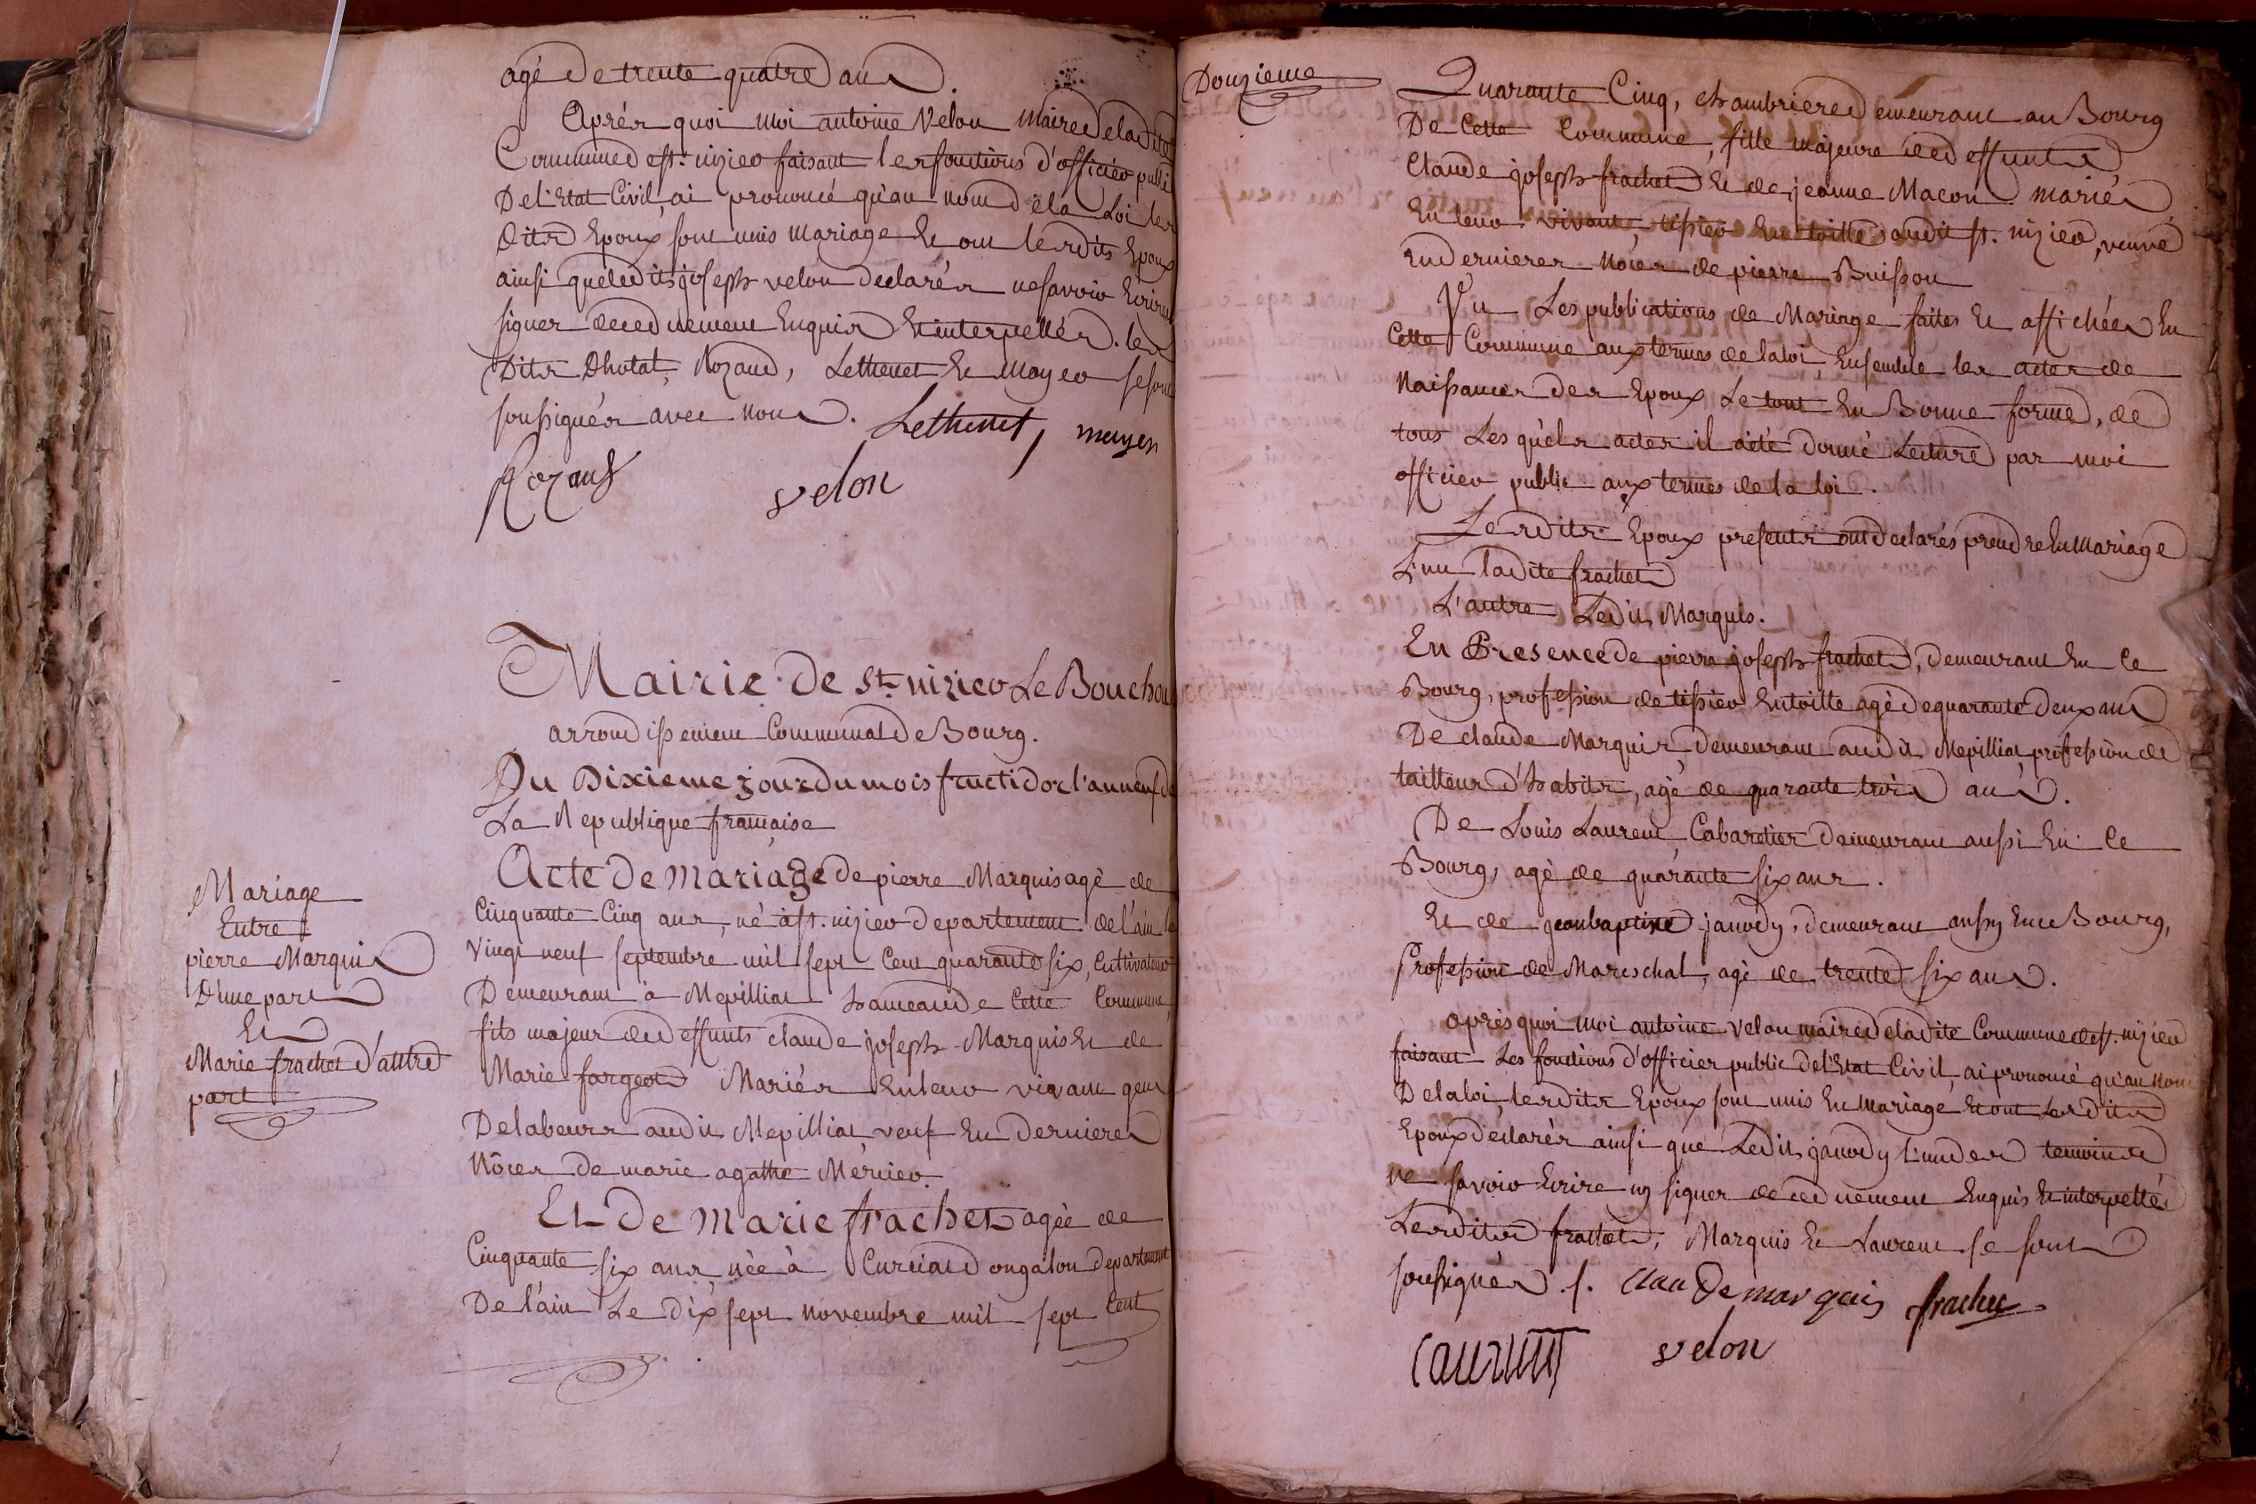 agé de trente quatre ans.
Après quoi moi antoine Velon maire de ladite
Commune de st. nizier faisant les fonctions d'officier public
De l'Etat Civil, ai prononcé qu'au nom de la Loi les
Dits Epoux sont unis mariage Et ont lesdits Epoux
ainsi que ledit joseph velon declarés ne savoir Ecrire
signer de ce duement Enquis Et interpellés. les
Dits Dhotal, Rozand, Lethenet Et Moyer se sont
soussignés avec nous. Lethenet, moyer
Rozand velon
Mairie de St. nizier Le Bouchou
arrondissement Communal De Bourg.
Du Dixieme jour du mois fructidor l'an neuf de
La Republique française
Mariage
Entre
pierre Marquis
D'une part
Et
Marie frachet d'autre
part
Acte De mariage de pierre Marquis agé de
Cinquante Cinq ans, né à st. nizier departement de l'ain le
Vingt neuf septembre mil sept Cent quarante six, Cultivateur
Demeurant à Mepilliat hameau de Cette Commune,
fils majeur de deffunts claude joseph Marquis Et de
Marie fargeot Mariés En leur vivant gens
De labeurs audit Mepilliat, veuf En dernieres
Nôces de marie agathe Mércier.
Et De marie frachet agée de
Cinquante six ans née à Curciat dongalon departement
De l'ain Le dix sept novembre mil sept Cent
Douzieme
Quarante Cinq, chambriere demeurant au Bourg
De Cette Commune, fille majeure de deffunts
Claude joseph frachet Et de jeanne Macon mariés
En leur vivant, tissier En toille audit st. nizier, veuve
En dernieres nôces de pierre Buisson
Vu Les publications de Mariage faites Et affichées En
Cette Commune aux termes de la loi, Ensemble les actes de
Naissances des Epoux Le tout En Bonne forme, de
tous Les quels actes il a été donné Lecture par moi
officier public aux termes de la loi.
Lesdits Epoux presents ont declarés prendre En Mariage
L'un ladite frachet
L'autre Ledit Marquis.
En Presence de pierre joseph frachet, demeurant En Ce
Bourg, profession de tissier En toille agé de quarante deux ans
De claude Marquis, demeurant audit Mepilliat profession de
tailleur d'habits, agé de quarante trois ans.
De Louis Laurent Cabaretier demeurant aussi En Ce
Bourg, agé de quarante six ans.
Et de jean baptiste janody, demeurant aussy En ce Bourg,
Profession de Mareschal, agé de trente six ans.
après quoi moi antoine velon maire de ladite Commune de st. nizier
faisant Les fonctions d'officier public de l'Etat Civil, ai prononcé qu'au Nom
De la loi, lesdits Epoux sont unis En Mariage Et ont Lesdits
Epoux declarés ainsi que Ledit janody l'un des temoins
ne savoir Ecrire ny signer de ce duement Enquis Et interpellés
Lesdits frachet, Marquis Et Laurent se sont
soussignés. f. claude marquis frachet
Laurent velon